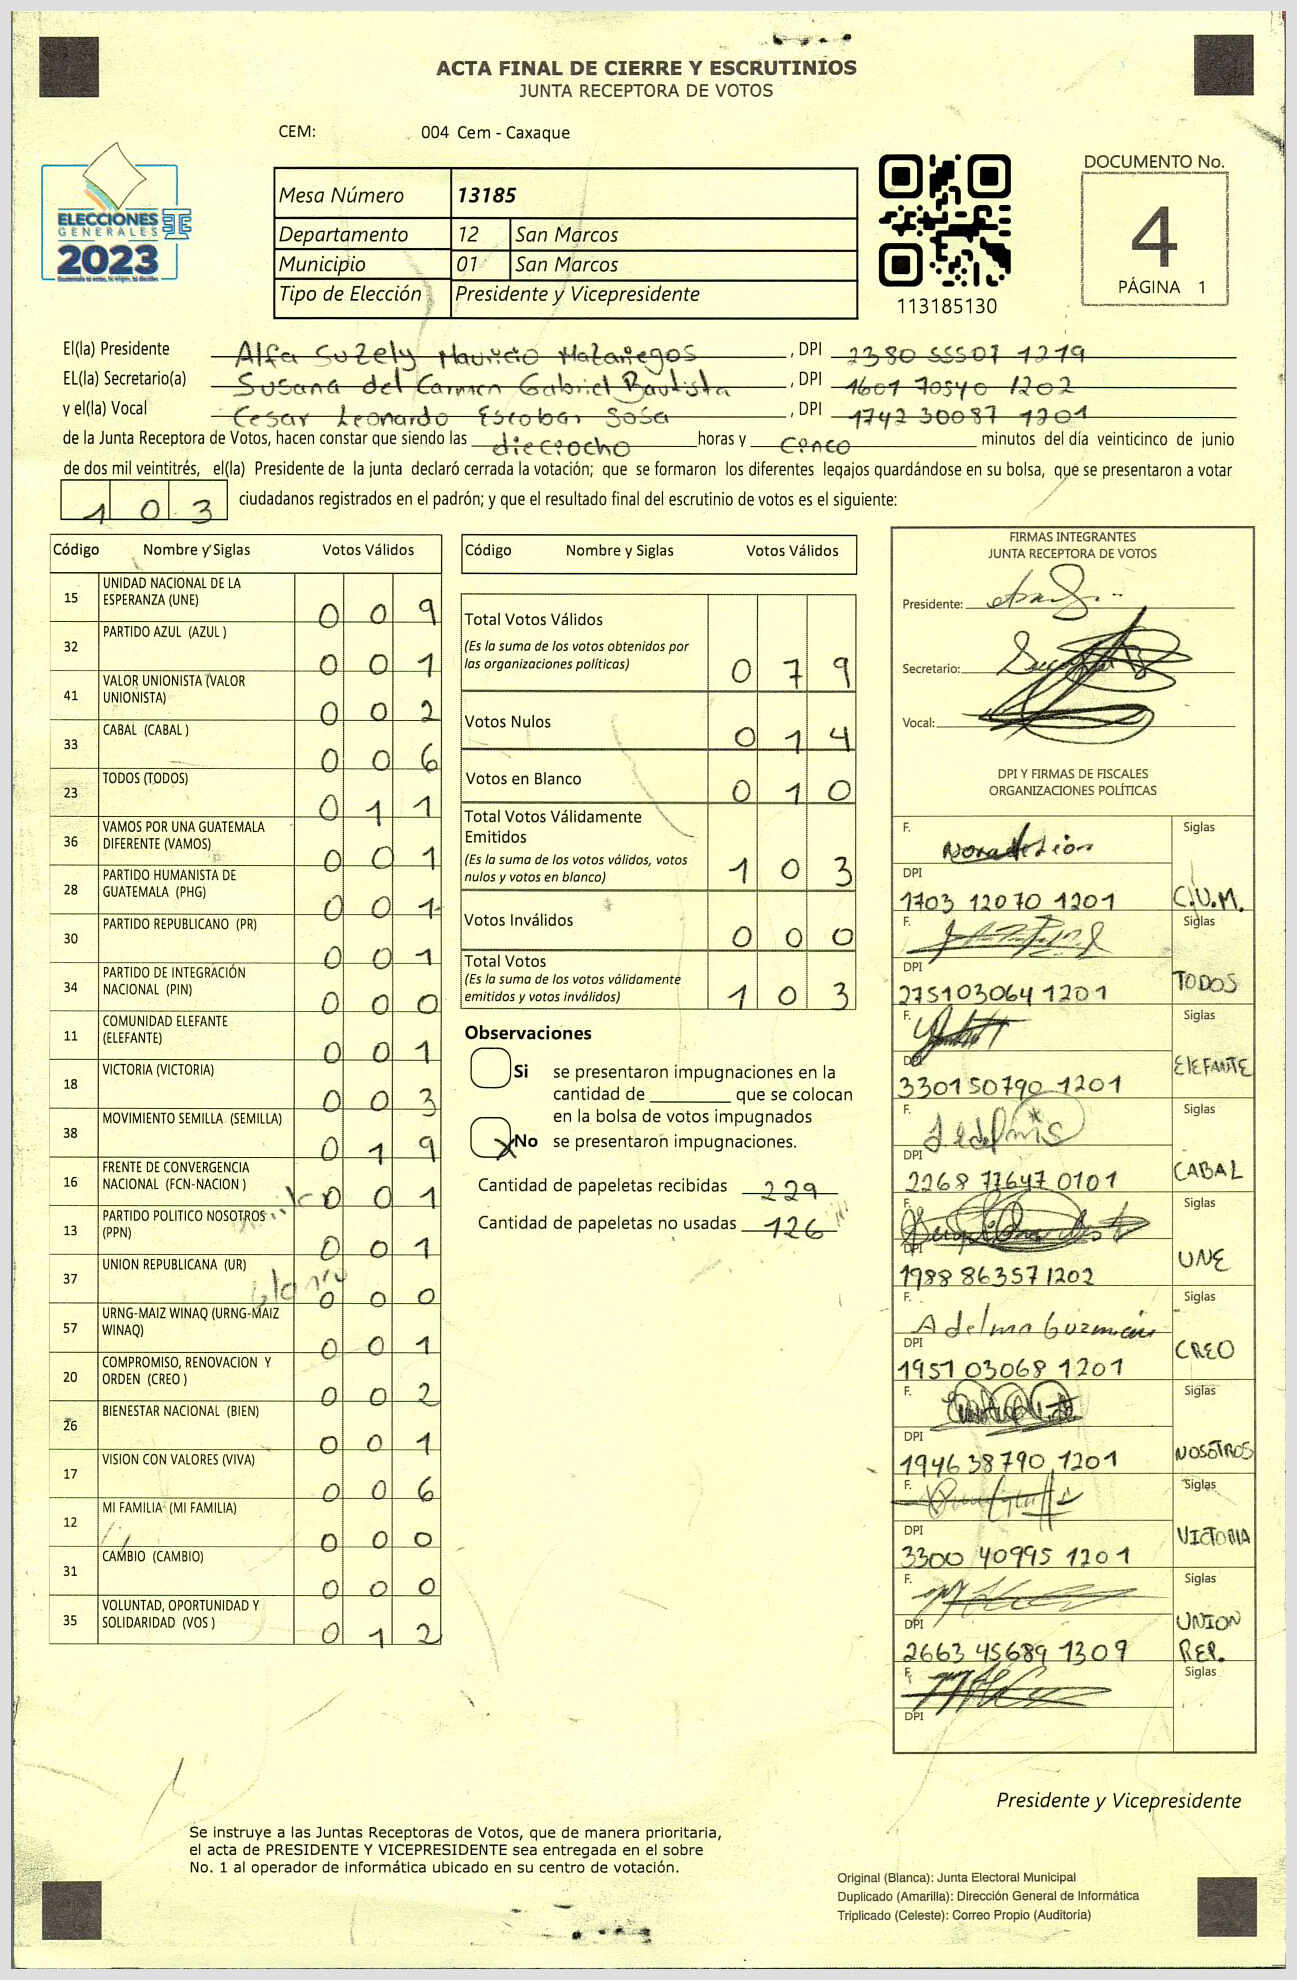 ACTA FINAL DE CIERRE Y ESCRUTINIOS
JUNTA RECEPTORA DE VOTOS
CEM: 004 Cem - Caxaque
ELECCIONES
GENERALES
2023
Mesa Número 13185
Departamento 12 San Marcos
Municipio 01 San Marcos
Tipo de Elección Presidente y Vicepresidente
113185130
DOCUMENTO No.
4
PÁGINA 1
El(la) Presidente Alfa Suzely Mauricio Mazariegos, DPI 2380 55507 1219
EL(la) Secretario(a) Susana del Carmen Gabriel Bautista, DPI 1601 70540 1202
y el(la) Vocal Cesar Leonardo Escobar Sosa, DPI 1742 30087 1201
de la Junta Receptora de Votos, hacen constar que siendo las dieciocho horas y cinco minutos del día veinticinco de junio
de dos mil veintitrés, el(la) Presidente de la junta declaró cerrada la votación; que se formaron los diferentes legajos quardándose en su bolsa, que se presentaron a votar
103 ciudadanos registrados en el padrón; y que el resultado final del escrutinio de votos es el siguiente:
Código Nombre y Siglas Votos Válidos
15 UNIDAD NACIONAL DE LA ESPERANZA (UNE) 0 0 9
32 PARTIDO AZUL (AZUL ) 0 0 1
41 VALOR UNIONISTA (VALOR UNIONISTA) 0 0 2
33 CABAL (CABAL ) 0 0 6
23 TODOS (TODOS) 0 1 1
36 VAMOS POR UNA GUATEMALA DIFERENTE (VAMOS) 0 0 1
28 PARTIDO HUMANISTA DE GUATEMALA (PHG) 0 0 1
30 PARTIDO REPUBLICANO (PR) 0 0 1
34 PARTIDO DE INTEGRACIÓN NACIONAL (PIN) 0 0 0
11 COMUNIDAD ELEFANTE (ELEFANTE) 0 0 1
18 VICTORIA (VICTORIA) 0 0 3
38 MOVIMIENTO SEMILLA (SEMILLA) 0 1 9
16 FRENTE DE CONVERGENCIA NACIONAL (FCN-NACION ) 0 0 1
13 PARTIDO POLITICO NOSOTROS (PPN) 0 0 1
37 UNION REPUBLICANA (UR) 0 0 0
blanco
57 URNG-MAIZ WINAQ (URNG-MAIZ WINAQ) 0 0 1
20 COMPROMISO, RENOVACION Y ORDEN (CREO ) 0 0 2
26 BIENESTAR NACIONAL (BIEN) 0 0 1
17 VISION CON VALORES (VIVA) 0 0 6
12 MI FAMILIA (MI FAMILIA) 0 0 0
31 CAMBIO (CAMBIO) 0 0 0
35 VOLUNTAD, OPORTUNIDAD Y SOLIDARIDAD (VOS ) 0 1 2
Código Nombre y Siglas Votos Válidos
Total Votos Válidos 0 7 9
(Es la suma de los votos obtenidos por
las organizaciones políticas)
Votos Nulos 0 1 4
Votos en Blanco 0 1 0
Total Votos Válidamente
Emitidos 1 0 3
(Es la suma de los votos válidos, votos
nulos y votos en blanco)
Votos Inválidos 0 0 0
Total Votos 1 0 3
(Es la suma de los votos válidamente
emitidos y votos inválidos)
Observaciones
Si se presentaron impugnaciones en la
cantidad de ________ que se colocan
en la bolsa de votos impugnados
X No se presentaron impugnaciones.
Cantidad de papeletas recibidas 229
Cantidad de papeletas no usadas 126
FIRMAS INTEGRANTES
JUNTA RECEPTORA DE VOTOS
Presidente:
Secretario:
Vocal:
DPI Y FIRMAS DE FISCALES
ORGANIZACIONES POLÍTICAS
F. Siglas
DPI
1703 12070 1201 C.V.M.
F. Siglas
DPI
2751 03064 1201 TODOS
F. Siglas
DPI
3301 50790 1201 ElEFANTE
F. Siglas
DPI
2268 77647 0101 CABAL
F. Siglas
DPI
1988 86357 1202 UNE
F. Adelma Guzmán Siglas
DPI
1951 03068 1201 CREO
F. Siglas
DPI
1946 38790 1201 NOSOTROS
F. Siglas
DPI
3300 40995 1201 VICTORIA
F. Siglas
DPI
2663 45689 1309 UNION REP.
F. Siglas
DPI
Presidente y Vicepresidente
Se instruye a las Juntas Receptoras de Votos, que de manera prioritaria,
el acta de PRESIDENTE Y VICEPRESIDENTE sea entregada en el sobre
No. 1 al operador de informática ubicado en su centro de votación.
Original (Blanca): Junta Electoral Municipal
Duplicado (Amarilla): Dirección General de Informática
Triplicado (Celeste): Correo Propio (Auditoría)